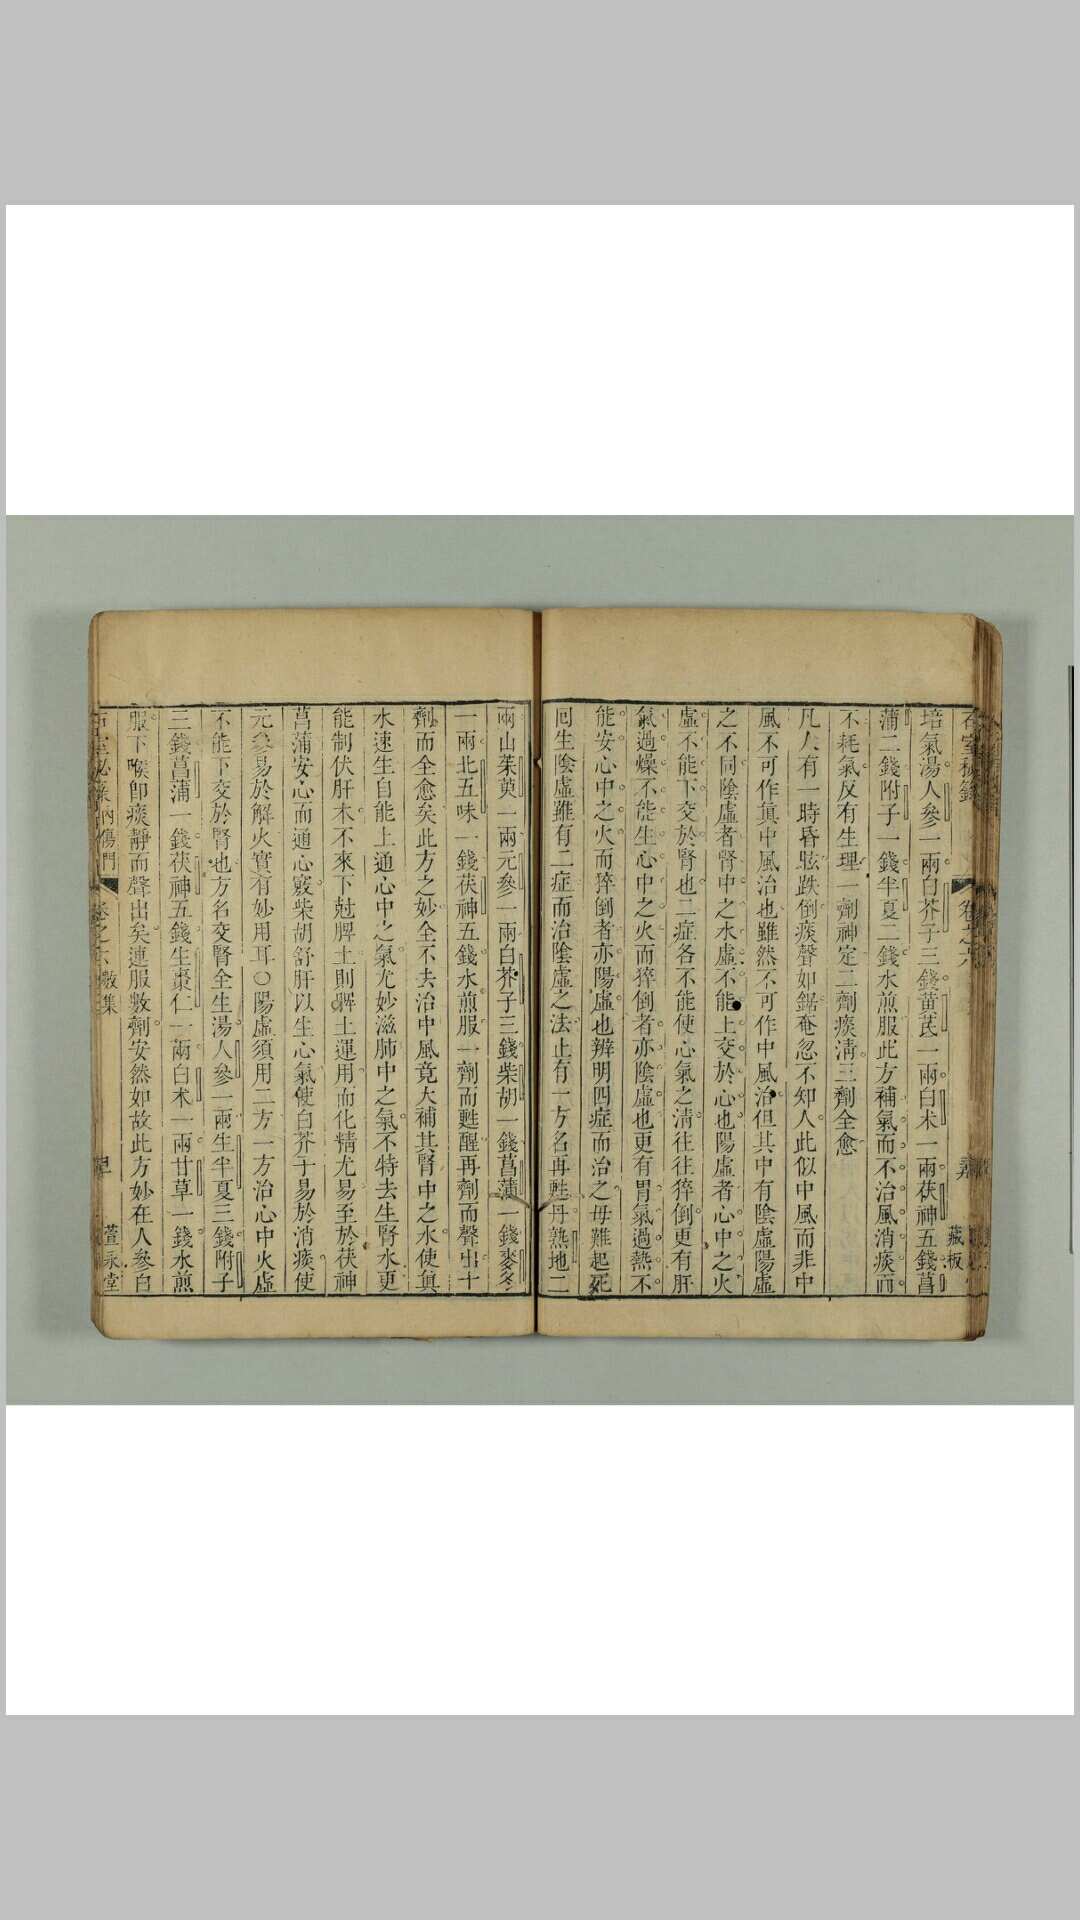 石室秘錄 卷之六 藏板
培氣湯人參一兩白芥子三錢黃芪一兩白术一兩茯神五錢菖
蒲二錢附子一錢半夏二錢水煎服此方補氣而不治風消痰而
不耗氣反有生理一劑神定二劑痰清三劑全愈
凡人有一時昏眩跌倒痰聲如鋸奄忽不知人此似中風而非中
風不可作眞中風治也雖然不可作中風治但其中有陰虛陽虛
之不同陰虛者腎中之水虛不能上交於心也陽虛者心中之火
虛不能下交於腎也二症各不能使心氣之清往往猝倒更有肝
氣過燥不能生心中之火而猝倒者亦陰虛也更有胃氣過熱不
能安心中之火而猝倒者亦陽虛也辨明四症而治之毋難起死
囘生陰虛雖有二症而治陰虛之法止有一方名再甦丹熟地二
兩山茱萸一兩元參一兩白芥子三錢柴胡一錢菖蒲一錢麥冬
一兩北五味一錢茯神五錢水煎服一劑而甦醒再劑而聲出十
劑而全愈矣此方之妙全不去治中風竟大補其腎中之水使眞
水速生自能上通心中之氣尤妙滋肺中之氣不特去生腎水更
能制伏肝木不來下尅脾土則脾土運用而化精尤易至於茯神
菖蒲安心而通心竅柴胡舒肝以生心氣使白芥子易於消痰使
元參易於解火實有妙用耳○陽虛須用二方一方治心中火虛
不能下交於腎也方名交腎全生湯人參一兩生半夏三錢附子
三錢菖蒲一錢茯神五錢生棗仁一兩白术一兩甘草一錢水煎
服下喉卽痰靜而聲出矣連服數劑安然如故此方妙在人參白
石室必錄 內傷門 卷之六 數集 萱永堂